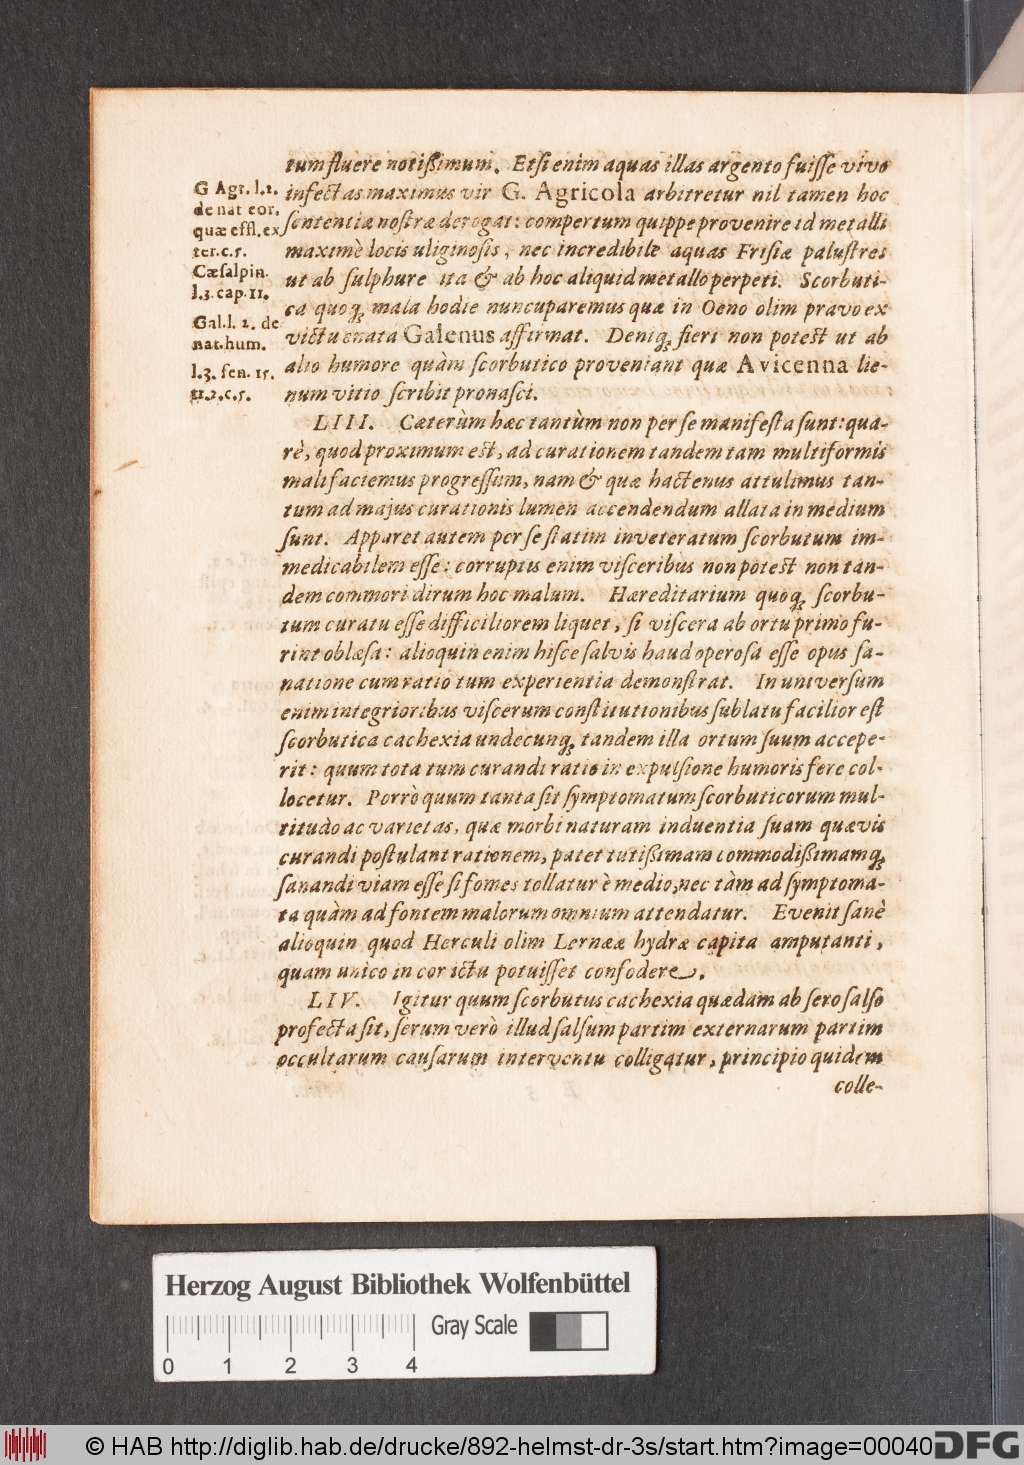 tum fluere notißimum. Etsi enim aquas illas argento fuiſſe vivo
G Agr. l.2.
de nat eor.
quæ effl. ex
ter.c.5.
Cæſalpin.
l.3. cap. 11.
Gal. l. 2. de
nat. hum.
l.3. fen. 15.
tr.2.c.5.
infectas maximus vir G. Agricola arbitretur nil tamen hoc
ſententiæ noſtræ derogat: compertum quippe provenire id metalli
maximè locis uliginoſis, nec incredibile aquas Friſiæ paluſtres
ut ab ſulphure ita & ab hoc aliquid metallo perpeti. Scorbuti-
ca quoq; mala hodie nuncuparemus quæ in Oeno olim pravo ex
victu enata Galenus affirmat. Deniq; fieri non poteſt ut ab
alio humore quàm ſcorbutico proveniant quæ Avicenna lie-
num vitio ſcribit pronaſci.
LIII. Cæterùm hæc tantùm non per ſe manifeſta ſunt: qua-
rè, quod proximum eſt, ad curationem tandem tam multiformis
mali faciemus progreſſum, nam & quæ hactenus attulimus tan-
tum ad majus curationis lumen accendendum allata in medium
ſunt. Apparet autem per ſe ſtatim inveteratum ſcorbutum im-
medicabilem eſſe: corruptis enim viſceribus non poteſt non tan-
dem commori dirum hoc malum. Hæreditarium quoq; ſcorbu-
tum curatu eſſe difficiliorem liquet, ſi viſcera ab ortu primo fu-
rint oblæſa: alioquin enim hiſce ſalvis haud operoſa eſſe opus ſa-
natione cum ratio tum experientia demonſtrat. In univerſum
enim integrioribus viſcerum conſtitutionibus ſublatu facilior eſt
ſcorbutica cachexia undecunq; tandem illa ortum ſuum accepe-
rit: quum tota tum curandi ratio in expulſione humoris fere col-
locetur. Porrò quum tanta ſit ſymptomatum ſcorbuticorum mul-
titudo ac varietas, quæ morbi naturam induentia ſuam quævis
curandi poſtulant rationem, patet tutißimam commodißimamq;
ſanandi viam eſſe ſi fomes tollatur è medio, nec tàm ad ſymptoma-
ta quàm ad fontem malorum omnium attendatur. Evenit ſanè
alioquin quod Herculi olim Lernææ hydræ capita amputanti,
quam unico in cor ictu potuiſſet confodere.
LIV. Igitur quum ſcorbutus cachexia quædam ab ſero ſalſo
profecta ſit, ſerum verò illud ſalſum partim externarum partim
occultarum cauſarum interventu colligatur, principio quidem
colle-
Herzog August Bibliothek Wolfenbüttel
Gray Scale
0 1 2 3 4
© HAB http://diglib.hab.de/drucke/892-helmst-dr-3s/start.htm?image=00040
DFG